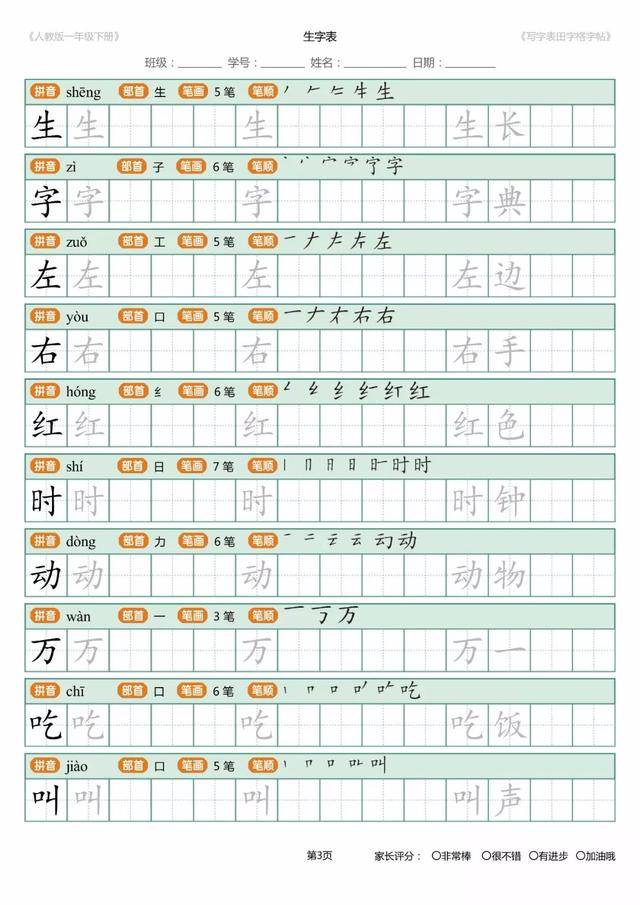 《人教版一年级下册》 生字表 《写字表田字格字帖》
班级：________ 学号：______ 姓名：__________ 日期：________
拼音 shēng 部首 生 笔画 5 笔 笔顺 生
生 生 生 生 长
拼音 zì 部首 子 笔画 6 笔 笔顺 字
字 字 字 字 典
拼音 zuǒ 部首 工 笔画 5 笔 笔顺 左
左 左 左 左 边
拼音 yòu 部首 口 笔画 5 笔 笔顺 右
右 右 右 右 手
拼音 hóng 部首 纟 笔画 6 笔 笔顺 红
红 红 红 红 色
拼音 shí 部首 日 笔画 7 笔 笔顺 时
时 时 时 时 钟
拼音 dòng 部首 力 笔画 6 笔 笔顺 动
动 动 动 动 物
拼音 wàn 部首 一 笔画 3 笔 笔顺 万
万 万 万 万 一
拼音 chī 部首 口 笔画 6 笔 笔顺 吃
吃 吃 吃 吃 饭
拼音 jiào 部首 口 笔画 5 笔 笔顺 叫
叫 叫 叫 叫 声
第3页 家长评分： ○非常棒 ○很不错 ○有进步 ○加油哦